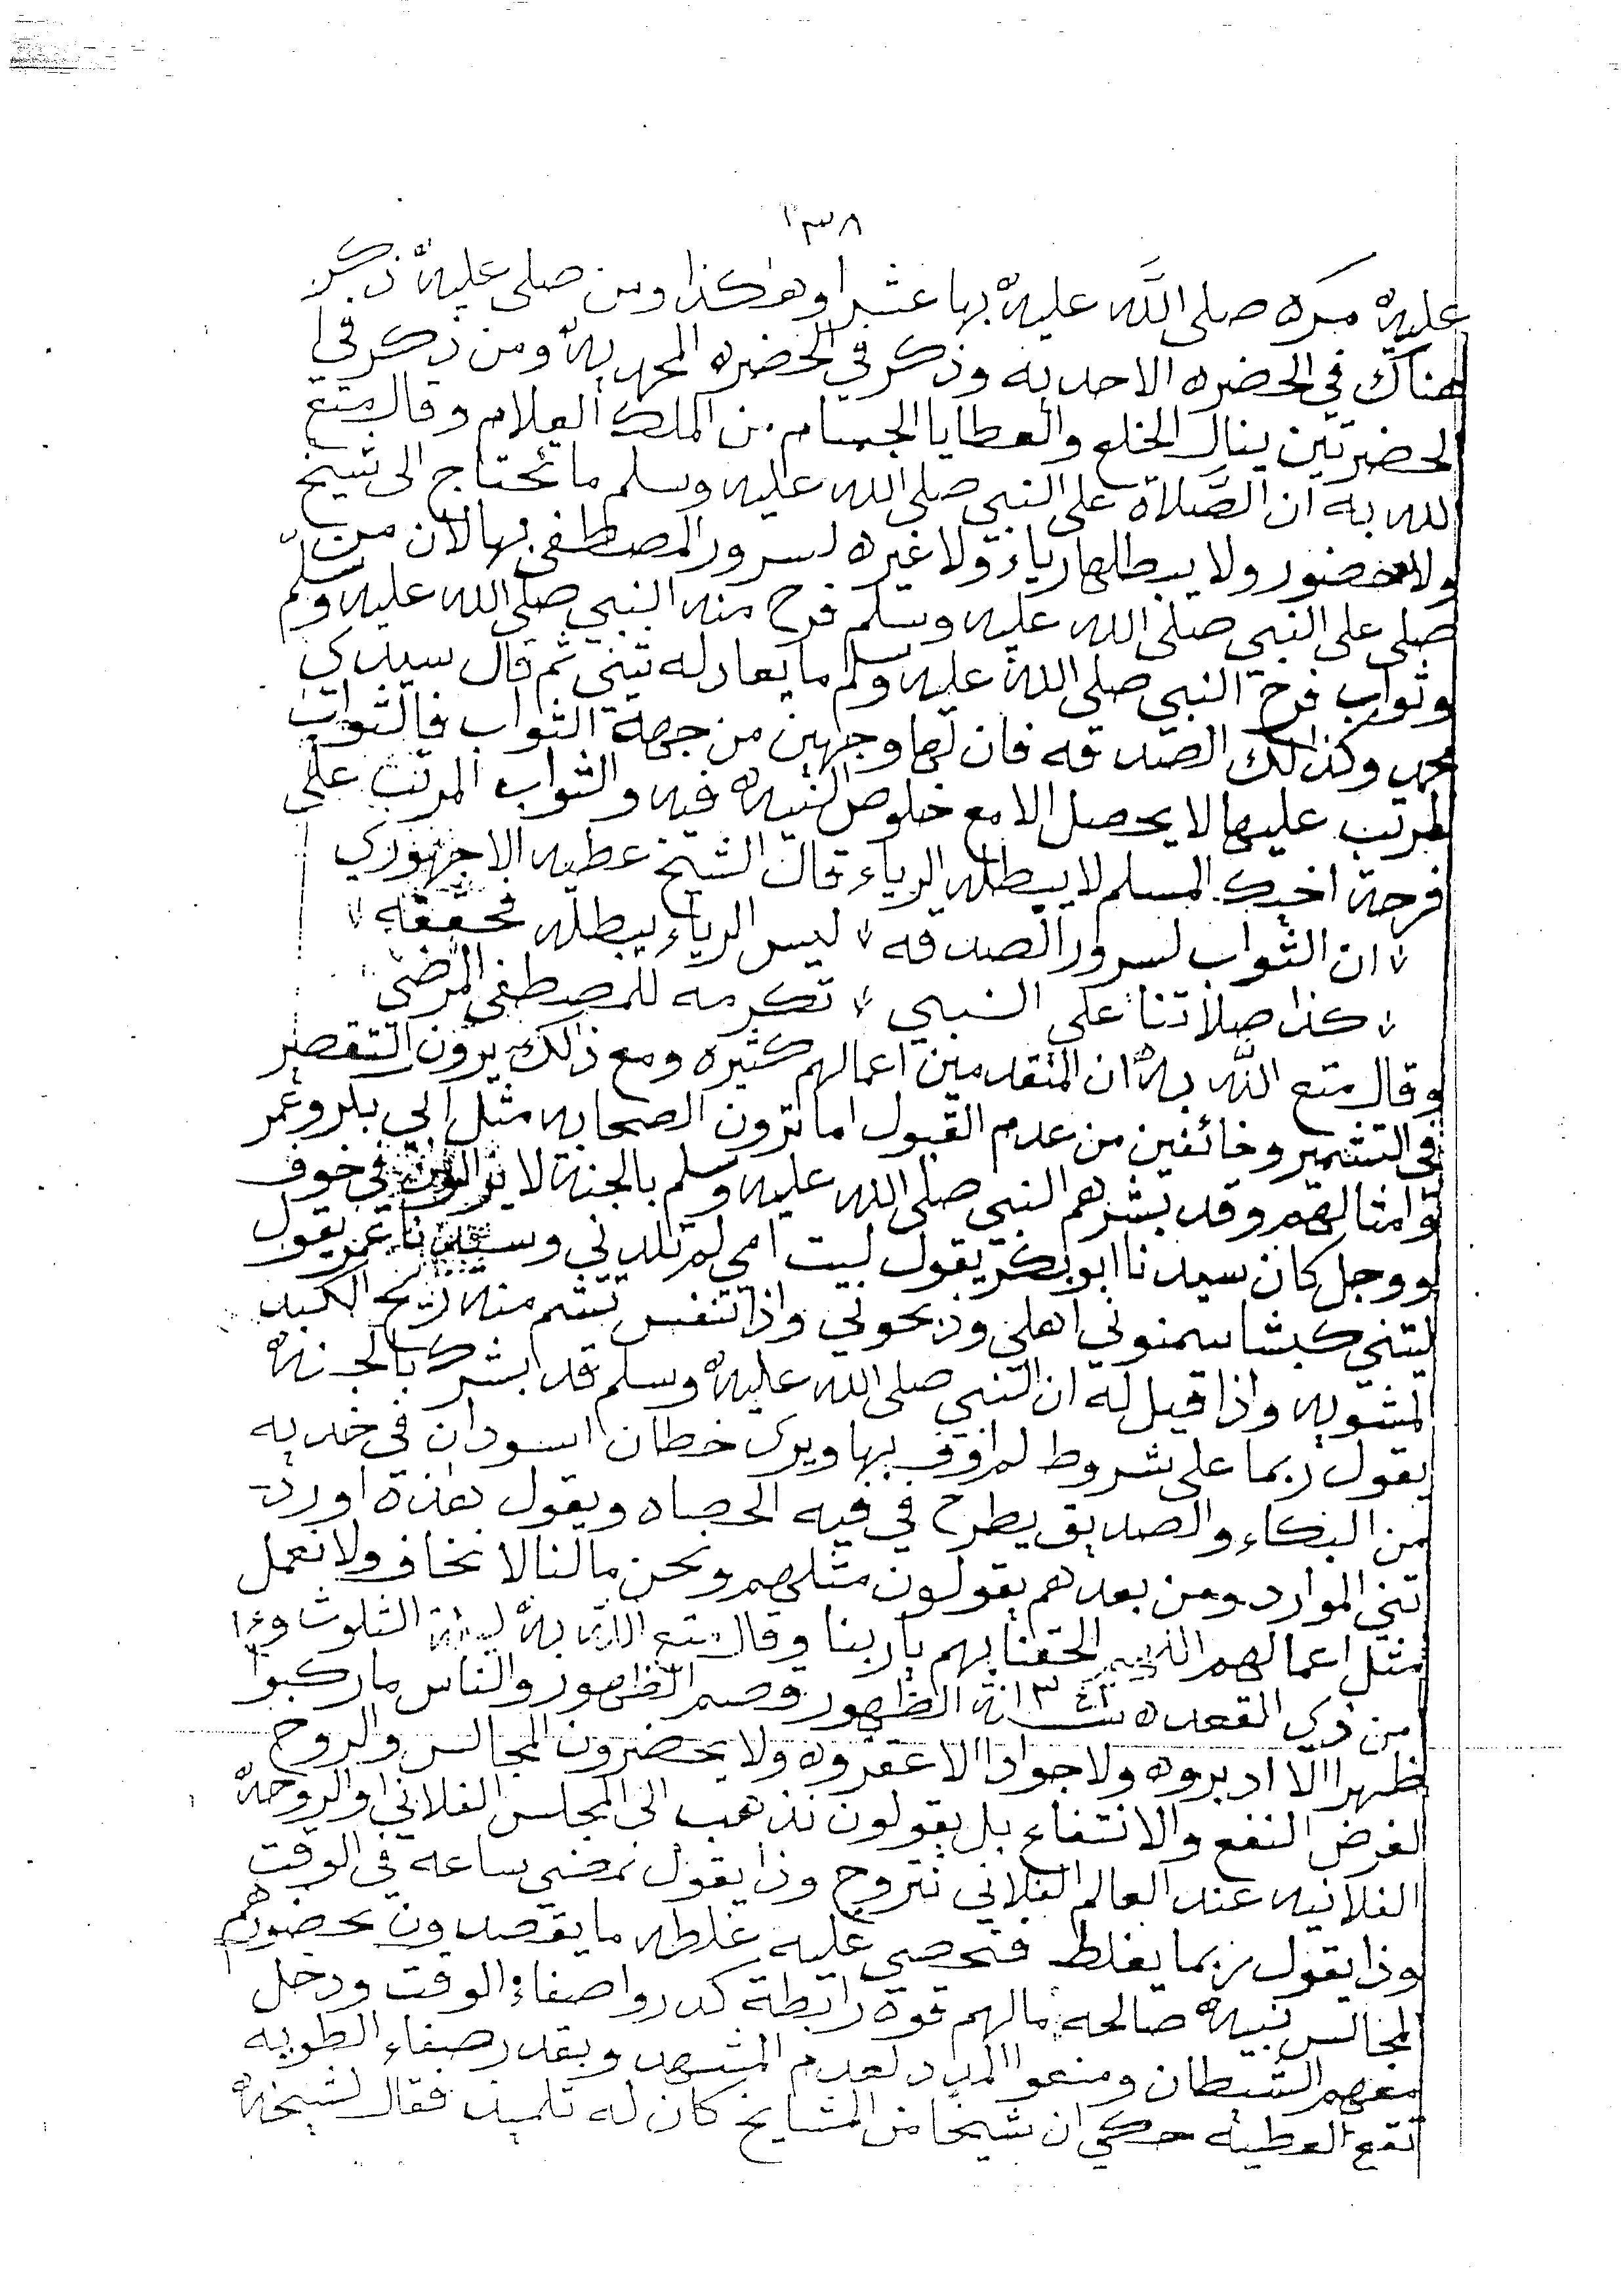 ١٣٨
عليه مره صلى الله عليه بها عشرا وهكذا ومن صلى عليه ذكر
هناك في الحضره الاحديه وذكر في الحضره المحمديه ومن ذكر في ا
لحضرتين ينال الخلع والعطايا الجسام من الملك العلام وقال متع
الله به ان الصلاة على النبي صلى الله عليه وسلم ما تحتاج الى شيخ
ولا حضور ولا يبطلها رياء ولا غيره لسرور المصطفى بها لان من
صلى على النبي صلى الله عليه وسلم فرح منه النبي صلى الله عليه وسلم
وثواب فرح النبي صلى الله عليه وسلم ما يعادله شي ثم قال سيدي
محمد وكذلك الصدقه فان لها وجهين من جهة الثواب فالثواب
المرتب عليها لا يحصل الا مع خلوص النيه فيه والثواب المرتب على
فرحة اخيك المسلم لا يبطله الرياء قال الشيخ عطيه الاجهوري
ان الثواب لسرور الصدقه ليس الرياء يبطله محققه
كذا صلاتنا على النبي تكرمه للمصطفى المرضي
وقال متع الله به ان المتقدمين اعمالهم كثيره ومع ذالك يرون التقصير
في التشمير وخائفين من عدم القبول اما ترون الصحابه مثل ابي بكر وعمر
وامثالهم وقد بشرهم النبي صلى الله عليه وسلم بالجنة لا يزالون في خوف
ووجل كان سيدنا ابوبكر يقول ليت امي لم تلدني وسيدنا عمر يقول
ليتني كبشا سمنوني اهلي وذبحوني واذا تنفس تشم منه ريح الكبد
المشويه واذا قيل له ان النبي صلى الله عليه وسلم قد بشرك بالجنه
يقول ربما على شروط لم اوف بها ويرى خطان اسودان في خديه
من البكاء والصديق يطرح في فيه الحصاه ويقول هذه اورد
تني الموارد ومن بعدهم يقولون مثلهم ونحن مالنا لا نخاف ولا نعمل
مثل اعمالهم اللهم الحقنا بهم ياربنا وقال متع الله به ليلة الثلوث و١٤
من ذي القعده سنة ١٣٤٢ الظهور وصم الظهور والناس ماركبوا
ظهرا الا ادبروه ولا جوادا الا عقروه ولا يحضرون المجالس والروح
لغرض النفع والانتفاع بل يقولون نذهب الى المجلس الفلاني اوالروحه
الفلانيه عند العالم الفلاني نتروح وذا يقول نمضي ساعه في الوقت
وذا يقول ربما يغلط فنحصي عليه غلطه ما يقصدون بحضورهم
المجالس نيه صالحه مالهم قوة رابطة كدروا صفاء الوقت ودخل
معهم الشيطان ومنعوا المدد لعدم المشهد وبقدر صفاء الطويه
تقع العطيه حكي ان شيخا من المشايخ كان له تلميد فقال لشيخه